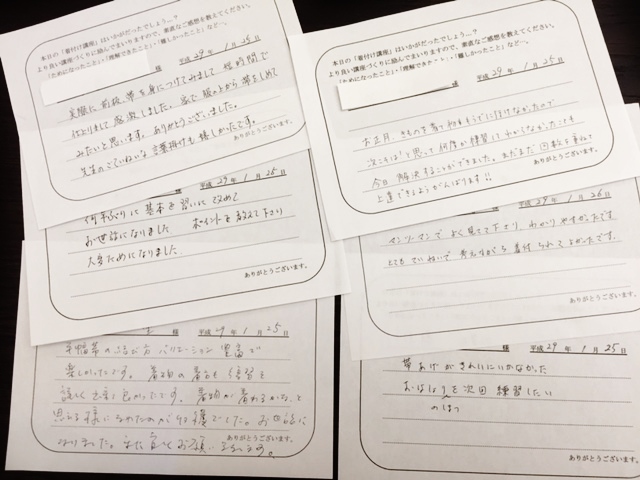 本日の「着付け講座」はいかがだったでしょう…？
より良い講座づくりに励んでまいりますので、素直なご感想を教えてください。
「ためになったこと」・「理解できたこと」・「難しかったこと」など…。
様 平成 29 年 1 月 25 日
実際に 前板、帯を身につけてみまして 短時間で
仕上りまして 感激しました。 家で 服の上から 帯をしめて
みたいと思います。ありがとうございました。
先生のごていねいな 言葉掛けも 嬉しかったです。
ありがとうございます。
本日の「着付け講座」はいかがだったでしょう…？
より良い講座づくりに励んでまいりますので、素直なご感想を教えてください。
「ためになったこと」・「理解できたこと」・「難しかったこと」など…。
様 平成 29 年 1 月 25 日
お正月、きものを着て初もうでに行けなかたので
次こそは！と思って 何度か練習して わからなかったことも
今日 解決することができました。まだまだ 回数を重ねて
上達できるようがんばります!!
ありがとうございます。
様 平成 29 年 1 月 25 日
何年ぶりに 基本を習いに 改めて
お世話になりました ポイントを教えて下さり
大変ためになりました
ありがとうございます。
様 平成 29 年 1 月 26 日
マンツーマンで よく見て下さり、わかりやすかったです
とても ていねいで 考えながら 着付けられてよかたです。
ありがとうございます。
様 平成 29 年 1 月 25 日
半幅帯の結び方 バリエーション 豊富で
楽しかったです。 着物の着方も 練習を
詳しく出来て良かったです。 着物が着れるかな、と
思える様になれたのが収穫でした。 お世話に
なりました。また 宜しくお願い します。
ありがとうございます。
様 平成 29 年 1 月 25 日
帯あげが きれいにいかなかった
おはしょりを 次回 練習したい
ありがとうございます。